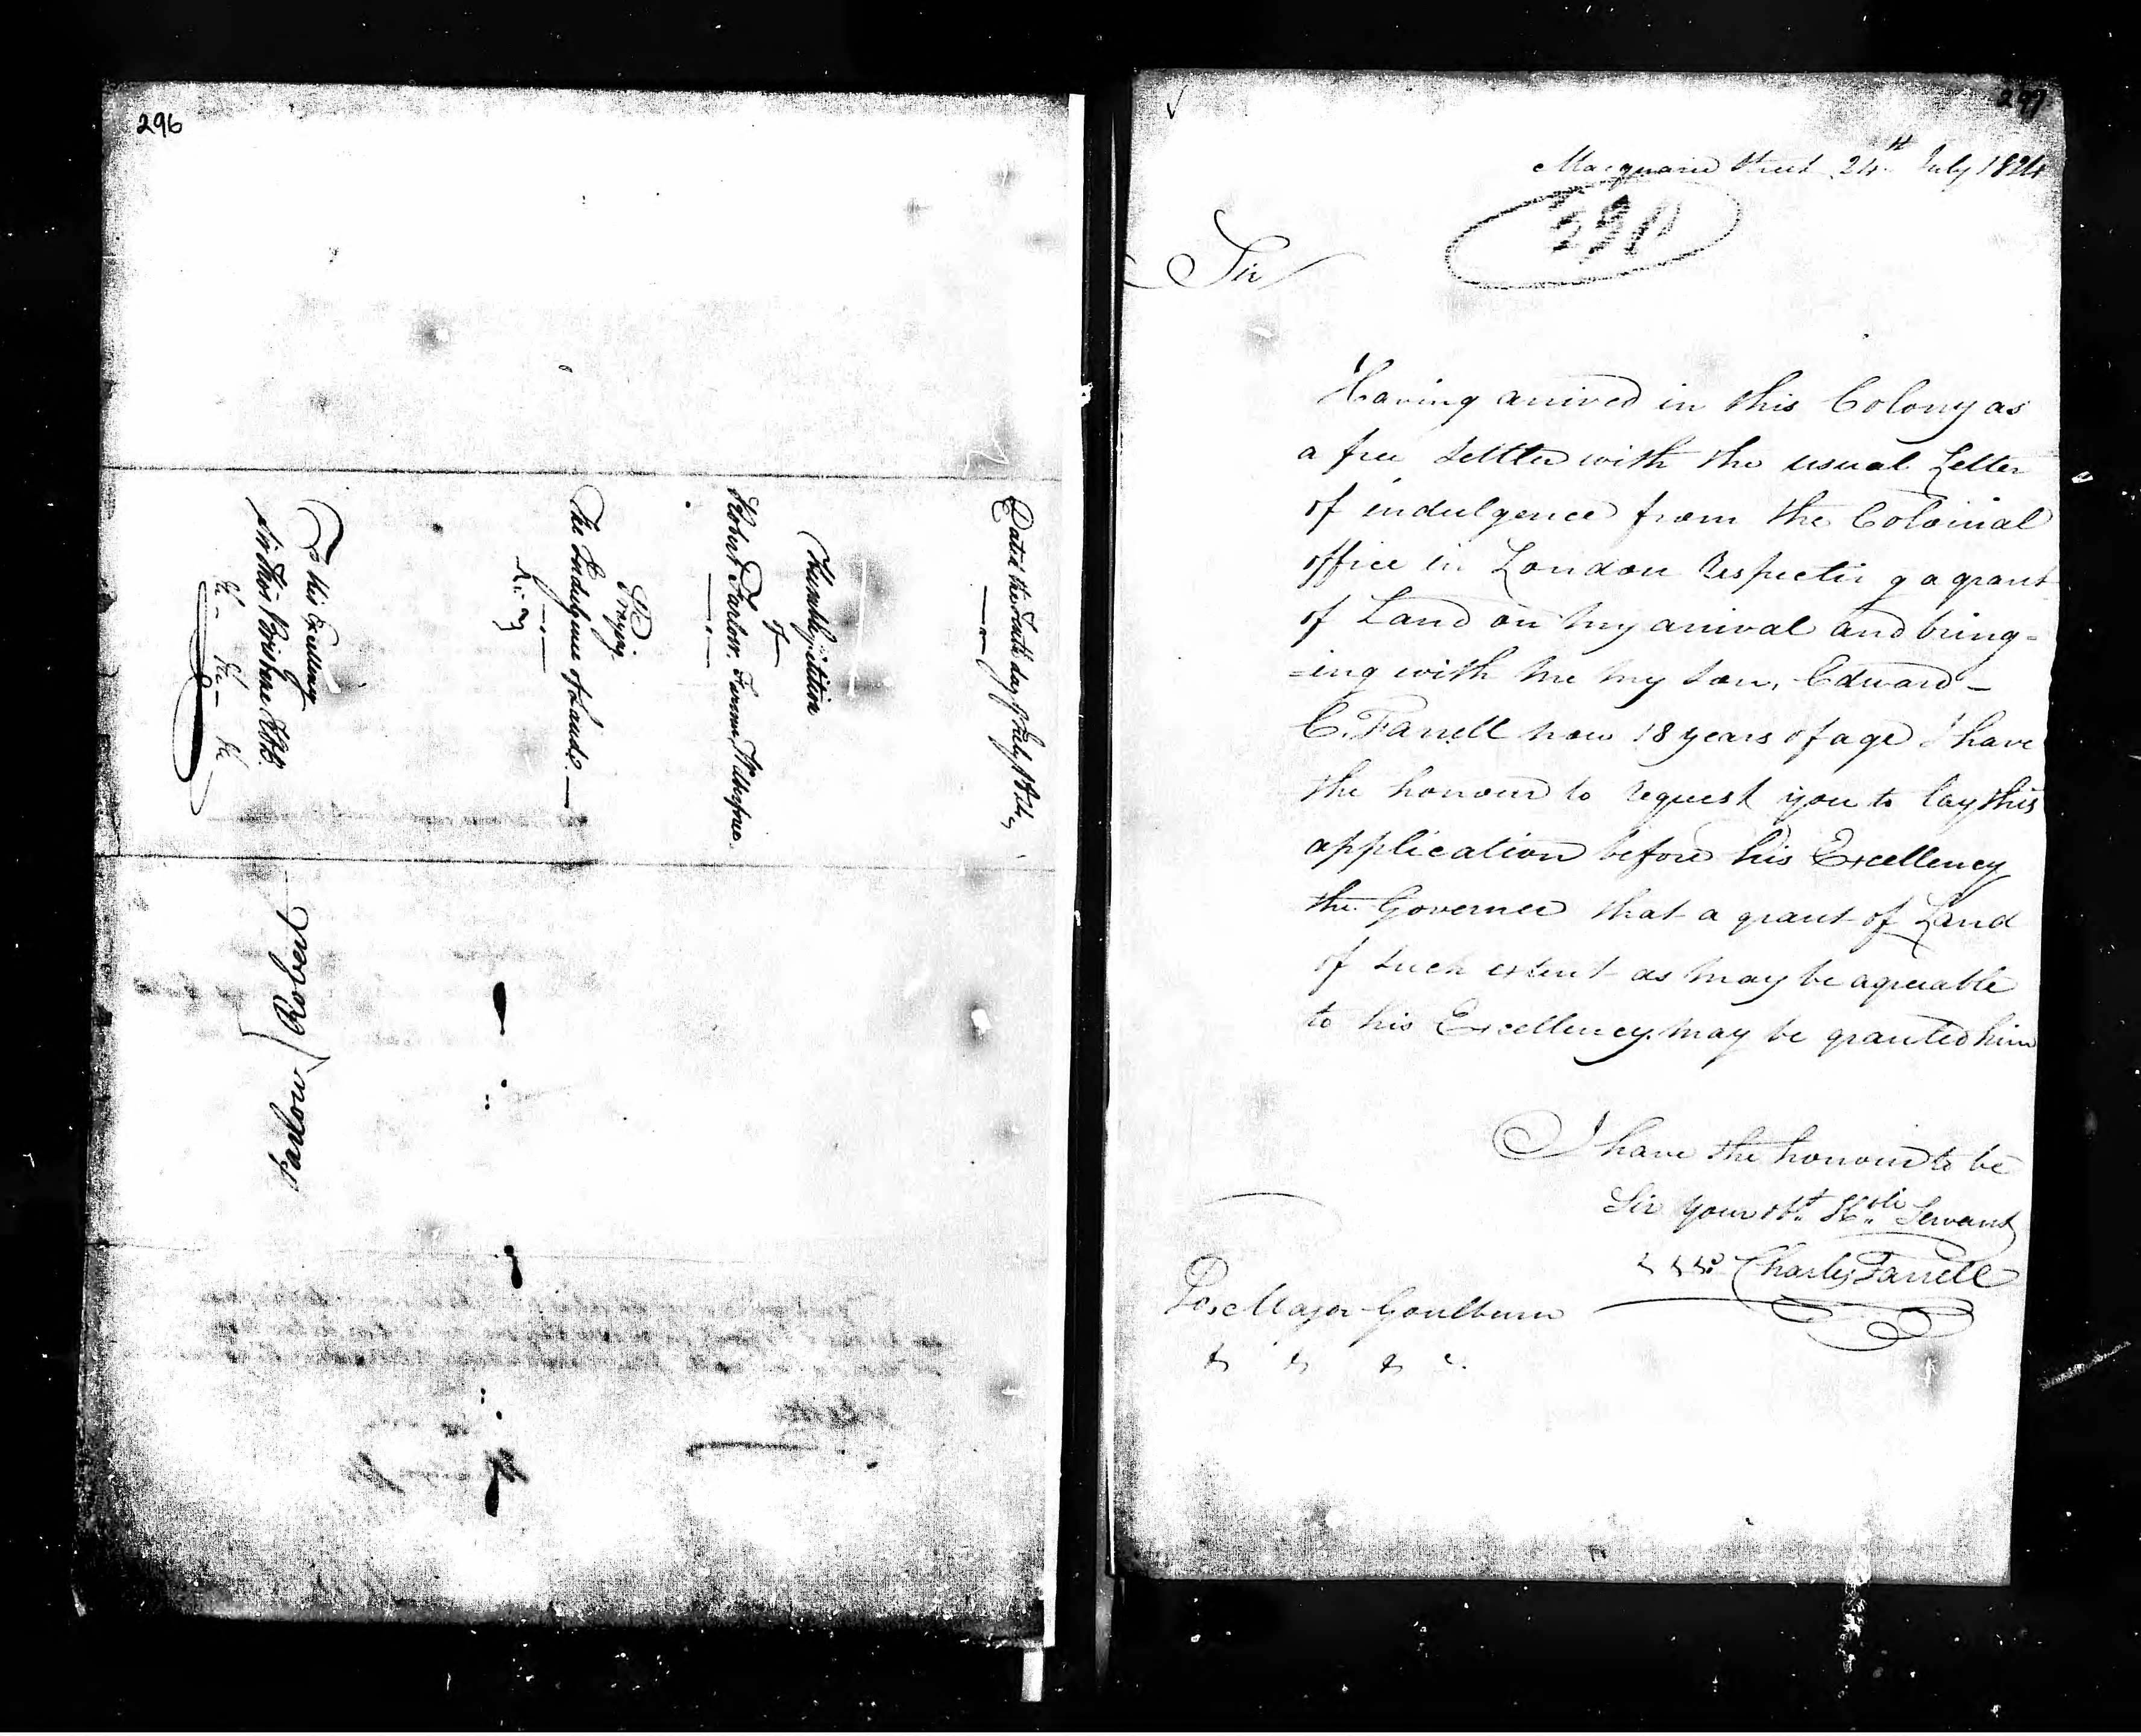 296
Dated the Tenth day of July, 1824
Humble petition
of
Robert Farlow. Farmer, Wilberforce.
Praying
The Indulgence of Land.
&c &c
To his Excellency
Sir Thos Brisbane K.C.B.
&c &c &c
Farlow Robert
297
Macquarie Street 24th July 1824
Sir
Having arrived in this Colony as
a free Settler with the usual Letter
of indulgence from the Colonial
office in London Respecting a grant
of Land on my arrival and bring=
=ing with me my son, Edward
C. Farrell now 18 years of age I have
the honour to request you to lay this
application before his Excellency
the Governer that a grant of Land
of such extent as may be agreeable
to his Excellency may be granted him
I have the honour to be
Sir your Ot. Hble Servant
Charles Farrell
To, Major Goulburn
& & & c.